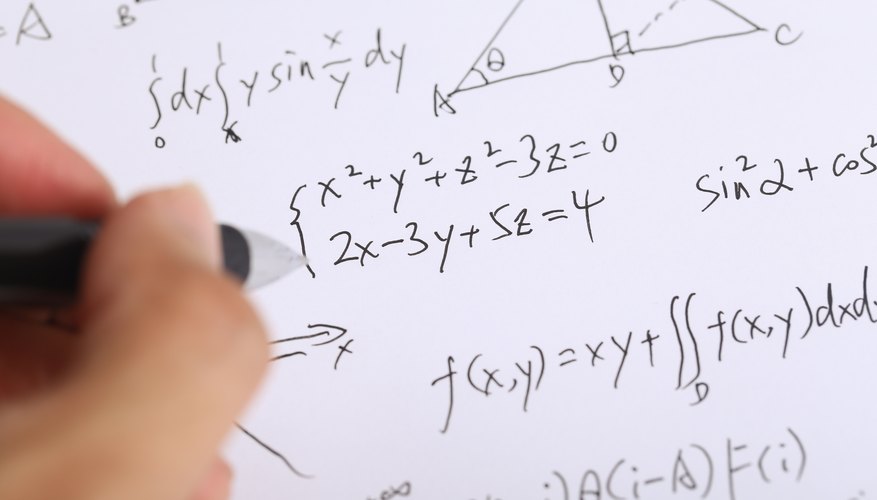 = A
B
∫₀¹dx∫ₓ¹ y sin x/y dy
A θ D C
x²+y²+z²-3z=0
2x-3y+5z=4
sin²α+cos²
x
f(x,y)=xy+∬_D f(x,y)dxd
∞
i)A(i-A)F(i)